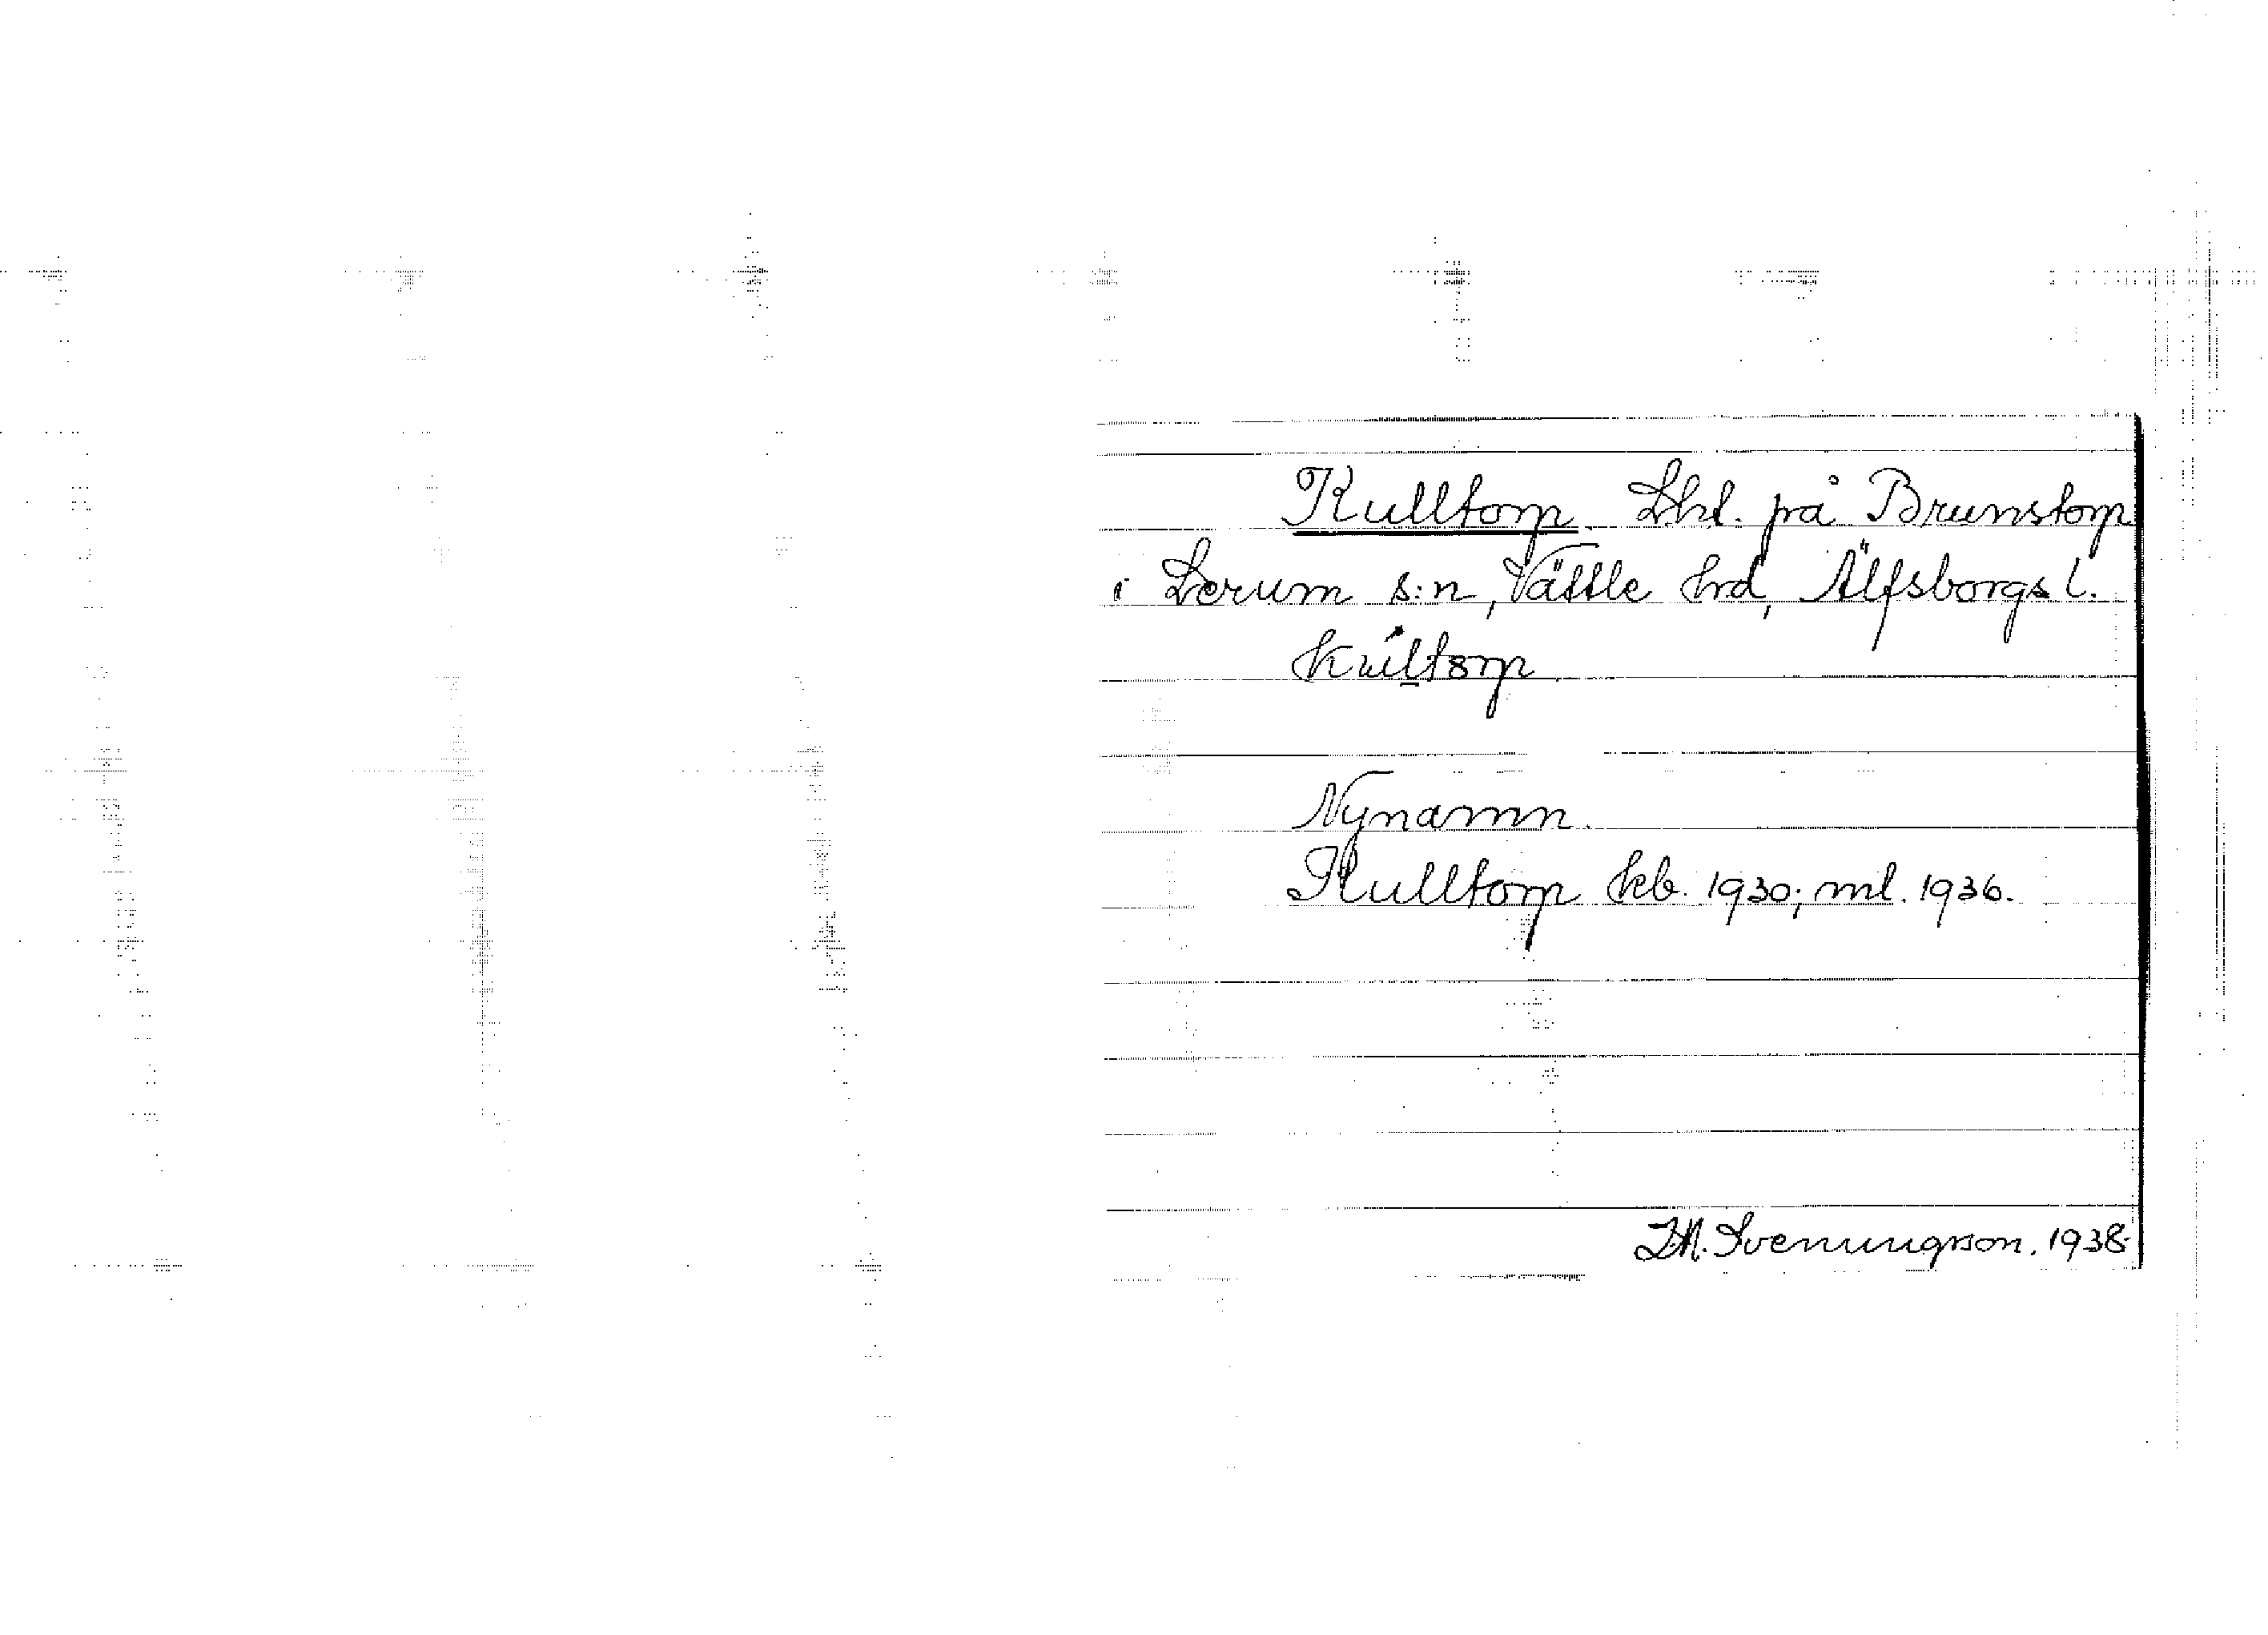 Kulltorp Lht. på Brunstorp
i Lerum s:n, Vättle hrd, Älfsborgs l.
kúltorp
Nynamn.
Kulltorp kb. 1930; ml. 1936.
I.M. Svenungsson. 1938